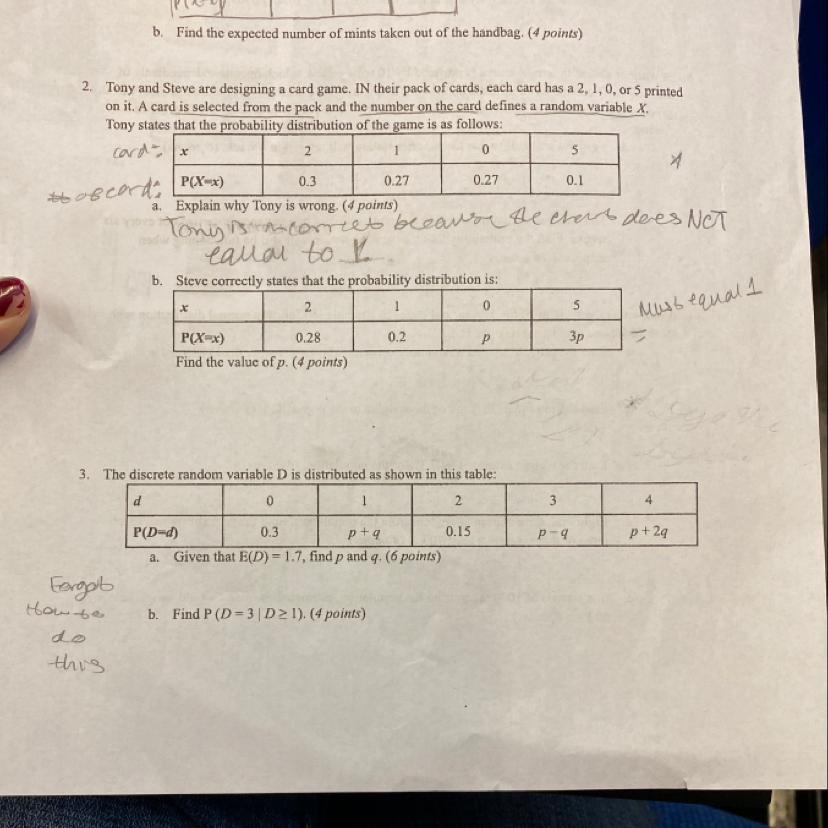 b. Find the expected number of mints taken out of the handbag. (4 points)
2. Tony and Steve are designing a card game. IN their pack of cards, each card has a 2, 1, 0, or 5 printed
on it. A card is selected from the pack and the number on the card defines a random variable X.
Tony states that the probability distribution of the game is as follows:
card: x 2 1 0 5
of card: P(X=x) 0.3 0.27 0.27 0.1
a. Explain why Tony is wrong. (4 points)
Tony is incorrect because the chart does NOT
equal to 1.
b. Steve correctly states that the probability distribution is:
x 2 1 0 5
Must equal 1
P(X=x) 0.28 0.2 p 3p =
Find the value of p. (4 points)
3. The discrete random variable D is distributed as shown in this table:
d 0 1 2 3 4
P(D=d) 0.3 p + q 0.15 p - q p + 2q
a. Given that E(D) = 1.7, find p and q. (6 points)
Forgot
How to
do
this
b. Find P (D = 3 | D ≥ 1). (4 points)